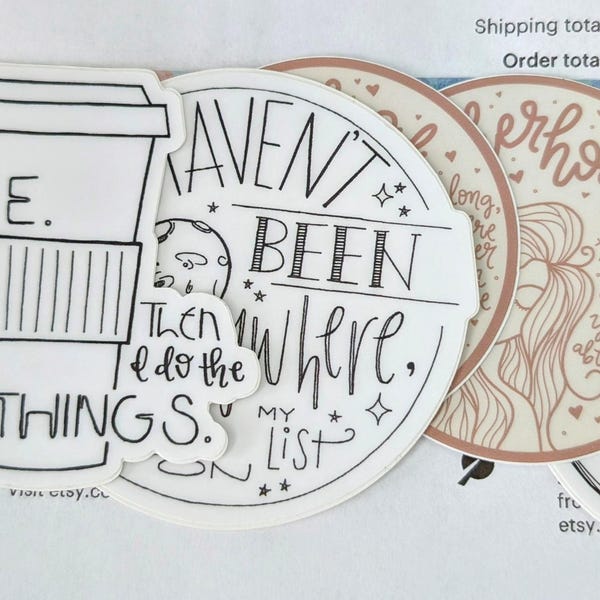 Shipping tota
Order tota
E.
Then
& do the
THINGS.
AVEN'T
BEEN
where,
MY
ON LIST
long,
erho
visit etsy.co
fro
etsy.